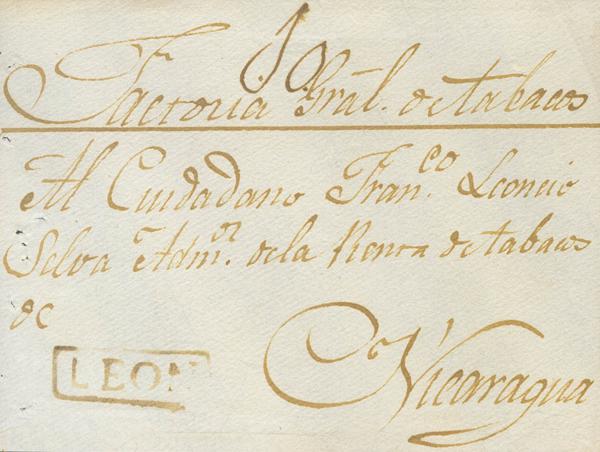 10.
Factoria Gràl. de tabacos
Al Cuidadano Fran.co Leoncio
Selva Adm.or de la Renta de tabacos
de
Nicaragua
LEON